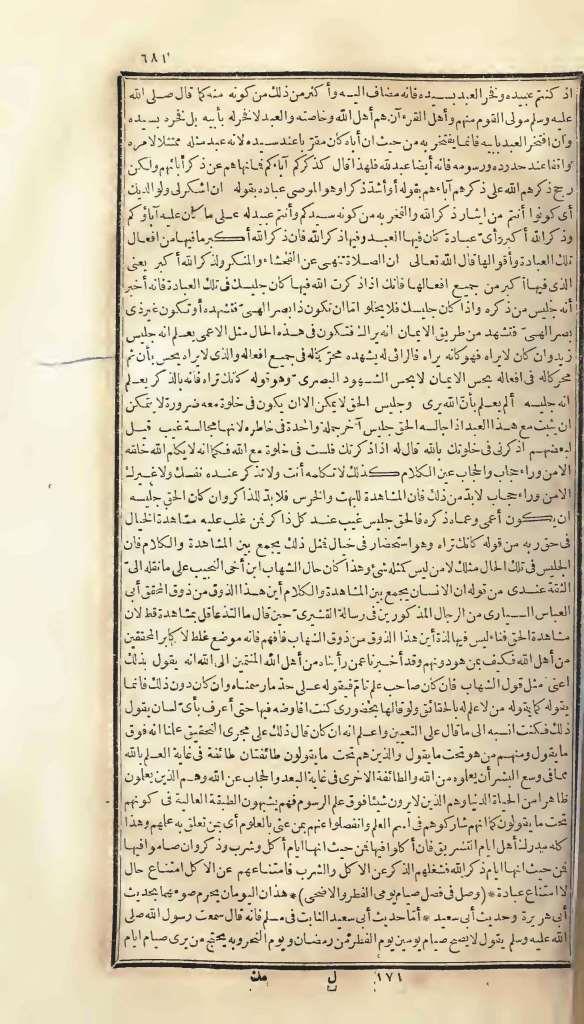 ٦٨١
اذ كنتم عبيده وفخر العبد بسيده فانه مضاف اليه وأكثر من ذلك من كونه منه كما قال صلى الله
عليه وسلم مولى القوم منهم وأهل القرءآن هم أهل الله وخاصته والعبد لا فخر له بأبيه بل فخره بسيده
وان افتخر العبد بابيه فانما يفتخر به من حيث ان أباه كان مقرّبا عند سيده لانه عبد مثله ممتثلا لامره
واقفا عند حدوده ورسومه فانه أيضا عبد لله فلهذا قال كذكركم آباءكم فما نهاهم عن ذكر آبائهم ولكن
رجح ذكرهم الله على ذكرهم آباءهم بقوله أو أشدّ ذكرا وهو الموصى عباده بقوله ان اشكر لى ولوالديك
أى كونوا أنتم من ايثار ذكر الله والفخر به من كونه سيدكم وأنتم عبيد له على ما كان عليه آباؤكم
وذكر الله أكبر وأىّ عبادة كان فيها العبد وفيها ذكر الله فان ذكر الله أكبر ما فيها من افعال
تلك العبادة وأقوالها قال الله تعالى ان الصلاة تنهى عن الفحشاء والمنكر ولذكر الله أكبر يعنى
الذى فيها اكبر من جميع افعالها فانك اذا ذكرت الله فيها كان جليسك فى تلك العبادة فانه أخبر
أنه جليس من ذكره واذا كان جليسك فلا يخلو امّا ان تكون ذا بصر الهىّ فتشهده أو تكون غير ذى
بصر الهىّ فتشهد من طريق الايمان انه يراك فتكون فى هذه الحال مثل الاعمى يعلم انه جليس
زيد وان كان لا يراه فهو كانه يراه فالرائى له يشهده محرّكا له فى جميع افعاله والذى لا يراه يحس بأن ثم
محركا له فى افعاله بحس الايمان لا بحس الشهود البصرى وهو قوله كانك تراه فانه بالذكر يعلم
انه جليسه ألم يعلم بأنّ الله يرى وجليس الحق لا يمكن الا ان يكون فى خلوة معه ضرورة لا يتمكن
ان يثبت مع هذا العبد اذا جالسه الحق جليس آخر جملة واحدة فى خاطره لانها مجالسة غيب قيل
لبعضهم اذكرنى فى خلوتك بالله قال له اذا ذكرتك فلست فى خلوة مع الله فكما انه لا يكلم الله خلقه
الا من وراء حجاب والحجاب عين الكلام كذلك لا تكلمه أنت ولا تذكر عنده نفسك ولا غيرك
الا من وراء حجاب لا بدّ من ذلك فان المشاهدة للبهت والخرس فلا بدّ للذاكر وان كان الحق جليسه
ان يكون أعمى وعماه ذكره فالحق جليس غيب عند كل ذاكر فمن غلب عليه مشاهدة الخيال
فى حق ربه من قوله كأنك تراه وهو استحضار فى خيال فمثل ذلك يجمع بين المشاهدة والكلام فان
الجليس فى تلك الحال مثلك لا من ليس كمثله شئ وهذا كان حال الشهاب ابن أخى النجيب على ما نقله الىّ
الثقة عندى من قوله ان الانسان يجمع بين المشاهدة والكلام أين هذا الذوق من ذوق المحقق أبى
العباس السيارى من الرجال المذكورين فى رسالة القشيرى حين قال ما التذ عاقل بمشاهدة قط لان
مشاهدة الحق فناء ليس فيها لذة أين هذا الذوق من ذوق الشهاب فافهم فانه موضع غلط لاكابر المحققين
من أهل الله فكيف بمن هو دونهم وقد أخبرنا عمن رأيناه من أهل الله المنتمين الى الله انه يقول بذلك
اعنى مثل قول الشهاب فان كان صاحب علم تامّ فيقوله على حدّ ما رسمناه وان كان دون ذلك فانما
يقوله كما يقوله من لا علم له بالحقائق ولو قالها بحضورى كنت افاوضه فيها حتى أعرف بأىّ لسان يقول
ذلك فكنت انسبه الى ما قال على التعيين واعلم انه ان كان قال ذلك على مجرى التحقيق علمنا انه فوق
ما يقول ومنهم من هو تحت ما يقول والذين هم تحت ما يقولون طائفتان طائفة فى غاية العلم بالله
مما فى وسع البشر أن يعلموه من الله والطائفة الاخرى فى غاية البعد والحجاب عن الله وهم الذين يعلمون
ظاهرا من الحياة الدنيا وهم الذين لا يرون شيئا فوق علم الرسوم فهم يشبهون الطبقة العالية فى كونهم
تحت ما يقولون كما انهم شاركوهم فى اسم العلم وانفصلوا عنهم بمن عنى بالعلوم أى بمن تعلق به علمهم وهذا
كله مدرك أهل ايام التشريق فان أكلوا فيها فمن حيث انها ايام أكل وشرب وذكر وان صاموا فيها
فمن حيث انها ايام ذكر الله فشغلهم الذكر عن الاكل والشرب فامتناعهم عن الاكل امتناع حال
لا امتناع عبادة * (وصل فى فصل صيام يومى الفطر والاضحى) * هذان اليومان يحرم صومهما بحديث
أبى هريرة وحديث أبى سعيد * أمّا حديث أبى سعيد الثابت فى مسلم فانه قال سمعت رسول الله صلى
الله عليه وسلم يقول لا يصح صيام يومين يوم الفطر من رمضان ويوم النحر وبه يحتج من يرى صيام ايام
١٧١ ل مك